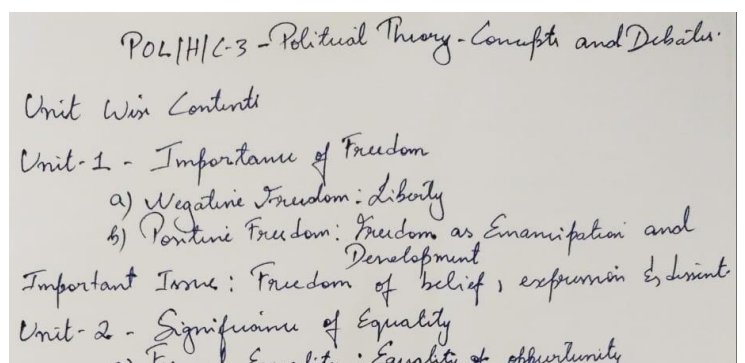 POL/H/C-3 - Political Theory - Concepts and Debates.
Unit Wise Contents
Unit-1 - Importance of Freedom
a) Negative Freedom: Liberty
b) Positive Freedom: Freedom as Emancipation and
Development
Important Issue: Freedom of belief, expression & dissent
Unit-2 - Significance of Equality
Equality: Equality of oppurtunity